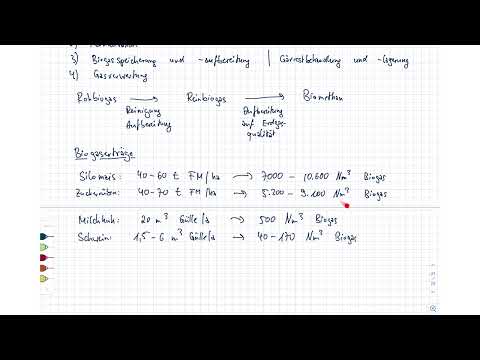 3) Biogasspeicherung und -aufbereitung | Gärrestbehandlung und -lagerung
4) Gasverwertung
Rohbiogas → Reinbiogas → Biomethan
Reinigung Aufbereitung
Aufbereitung auf Erdgas-
qualität
Biogaserträge
Silomais: 40-60 t FM/ha → 7000 - 10.600 Nm³ Biogas
Zuckerrüben: 40-70 t FM/ha → 5.200 - 9.100 Nm³ Biogas
Milchkuh: 20 m³ Gülle/a → 500 Nm³ Biogas
Schwein: 1,5-6 m³ Gülle/a → 40-170 Nm³ Biogas